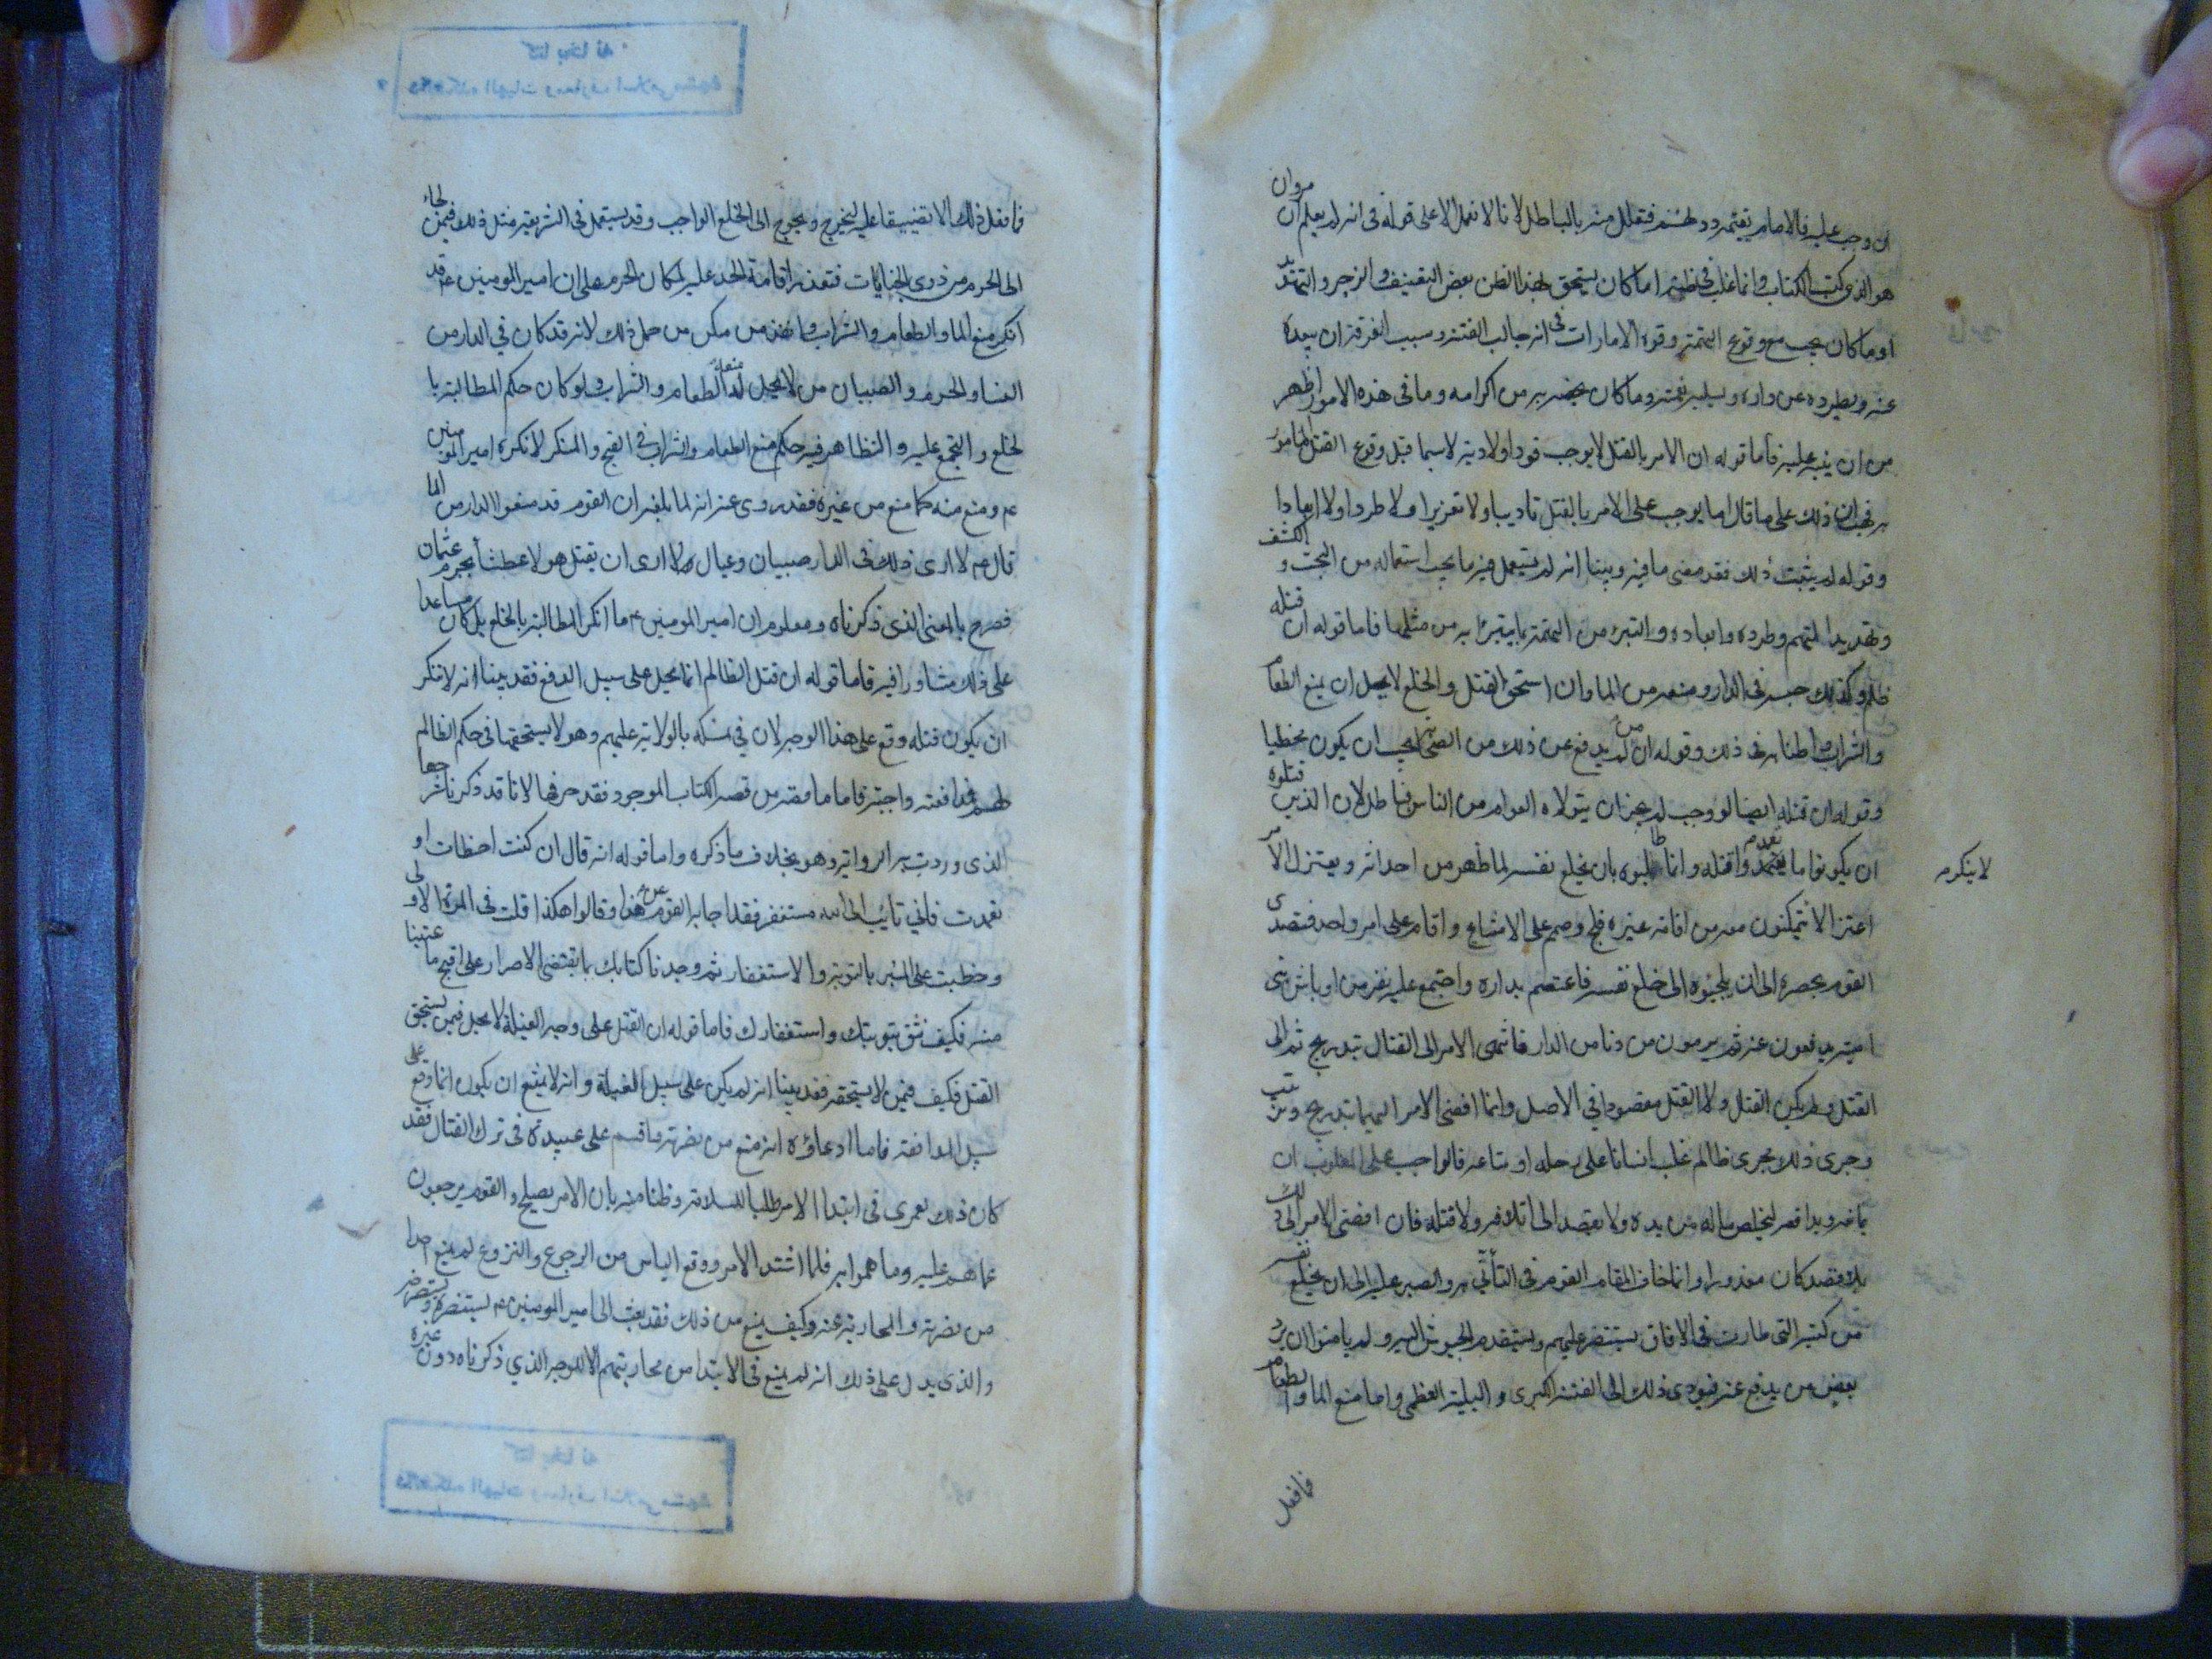 ان وجب عليه فالامام يقيمه دونهم فتعلل منه بالباطل لانا لا نعمل الا على قوله في انه لم يعلم ان مروان
هو الذي كتب الكتاب وانما غلب في ظنه اما كان يستحق بهذا الظن بعض التعنيف والزجر والتهديد
او ما كان يجب مع وقوع التهمة وقوة الامارات في انه جالب الفتنه وسبب الفرقة ان يبعده
عنه ويطرده عن داره ويسلبه نعمته وما كان يخصه به من اكرامه وما في هذه الامور اظهر
من ان ينبه عليه فأما قوله ان الامر بالقتل لا يوجب قودا ولا دية لا سيما قبل وقوع القتل المامور
به فهب ان ذلك على ما قال اما يوجب على الامر بالقتل تاديبا ولا تعزيرا ولا طردا ولا ابعادا
وقوله لم يثبت ذلك فقد مضى ما فيه وبينا انه لم يستعمل فيه ما يجب استعماله من البحث و الكشف
وتهديد المتهم وطرده وابعاده والتبرئ من التهمة بما يتبرئ به من مثلها فاما قوله ان قتله
ظلم وكذلك حبسه في الدار ومنعه من الماء وان استحق القتل والخلع لا يحل ان يمنع الطعام
والشراب واطنابه في ذلك وقوله ان من لم يدفع عن ذلك من الصحابة يجب ان يكون مخطيا
وقوله ان قتله ايضا لو وجب لم يجز ان يتولاه العوام من الناس فباطل لان الذين قتلوه
لا ينكر
ان يكونوا ما تعمدوا قتله وانما طالبوه بان يخلع نفسه لما ظهر من احداثه ويعتزل الامر
اعتزالا يتمكنون معه من اقامة غيره فلج وصمم على الامتناع واقام على امر واحد فتصدى
القوم بحصره الى ان يلجئوه الى خلع نفسه فاعتصم بداره واجتمع عليه نفر من اوباش بنى
امية يدفعون عنه ثم يرمون من دنا من الدار فانتهى الامر الى القتال بتدريج ثم الى
القتل ولم يكن القتال ولا القتل مقصودا في الاصل وانما افضى الامر اليهما بتدريج وترتيب
وجرى ذلك مجرى ظالم غلب انسانا على رحله او متاعه فالواجب على المغلوب ان
يمانعه ويدافعه ليخلص ماله من يده ولا يقصد الى اتلافه ولا قتله فان افضى الامر الى ذلك
بلا قصد كان معذورا وانما خاف القوم في التأنّي به والصبر عليه الى ان يخلع نفسه
من كتبه التي طارت في الافاق يستنصر عليهم ويستقدم الجيوش اليه ولم يامنوا ان يرد
بعض من يدفع عنه فيودى ذلك الى الفتنه الكبرى والبلية العظمى واما منع الماء والطعام
فما فعل
فما فعل ذلك الا تضييقا عليه ليخرج ويحوج الى الخلع الواجب وقد يستعمل في الشريعة مثل ذلك فيمن لجاء
الى الحرم من ذوى الجنايات فتعذر اقامة الحد عليه لمكان الحرم على ان امير المومنين ع قد
انكر منع الماء والطعام والشراب وانفذ من مكن من حمل ذلك لانه قد كان في الدار من
النساء والحرم والصبيان من لا يحل منعه الطعام والشراب ولو كان حكم المطالبة با
لخلع والتجمع عليه والتظاهر فيه حكم منع الطعام والشراب في القبح والمنكر لانكره امير المومنين
ع ومنع منه كما منع من غيره فقد روى عنه انه لما بلغه ان القوم قد منعوا الدار من الما
قال ع لا ارى ذلك في الدار صبيان وعيال ولا ارى ان يقتل هولا عطشاً بجرم عثمان
فصرح بالمعنى الذى ذكرناه ومعلوم ان امير المومنين ع ما انكر المطالبة بالخلع بل كان مساعدا
على ذلك مشاورا فيه فاما قوله ان قتل الظالم انما يحل على سبيل الدفع فقد بينا انه لا ننكر
ان يكون قتله وقع على هذا الوجه لان في تمسكه بالولاية عليهم وهو لا يستحقها في حكم الظالم
لهم فمدافعته واجبة فاما ما قصه من قصة الكتاب الموجود فقد حرفها لانا قد ذكرنا شرحها
الذى وردت به الرواية وهو بخلاف ما ذكره واما قوله انه قال ان كنت اخطات او
تعمدت فاني تائب الى الله مستغفر فقد اجابه القوم عن هذا وقالوا هكذا قلت في المرة الاولى
وخطبت على المنبر بالتوبة والاستغفار ثم وجدنا كتابك بما يقتضى الاصرار على اقبح ما عتبنا
منه فكيف نثق بتوبتك واستغفارك فاما قوله ان القتل على وجه الغيلة لا يحل فيمن يستحق
القتل فكيف فيمن لا يستحقه فقد بينا انه لم يكن على سبيل الغيلة وانه لا يمتنع ان يكون انما وقع على
سبيل المدافعة فاما ادعاؤه انه منع من نصرته واقسم على عبيده في ترك القتال فقد
كان ذلك لعمرى في ابتداء الامر طلبا للسلامة وظنا منه بان الامر يصلح والقوم يرجعون
عما هم عليه وما هموا به فلما اشتد الامر ووقع الياس من الرجوع والنزوع لم يمنع احدا
من نصرته والمحاربة عنه وكيف يمنع من ذلك فقد بعث الى امير المومنين ع يستنصره ويستصرخه
والذى يدل على ذلك انه لم يمنع في الابتدا من محاربتهم الا للوجه الذي ذكرناه دون غيره